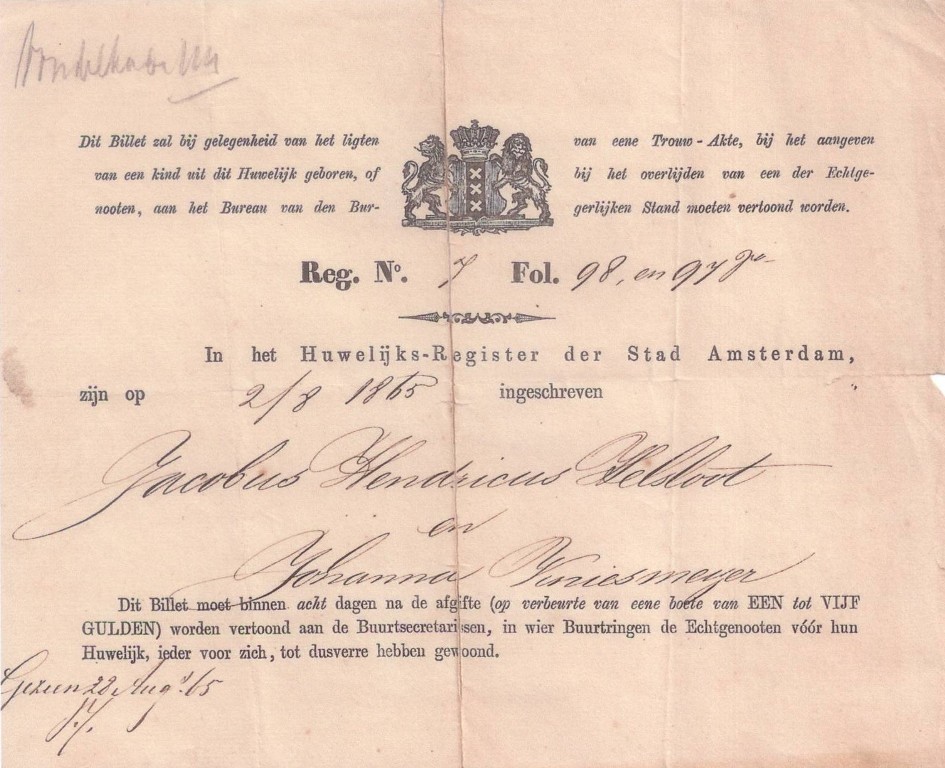 Dit Billet zal bij gelegenheid van het ligten van eene Trouw-Akte, bij het aangeven
van een kind uit dit Huwelijk geboren, of bij het overlijden van een der Echtge-
nooten, aan het Bureau van den Bur- gerlijken Stand moeten vertoond worden.
Reg. No. 7 Fol. 98, en 97
In het Huwelijks-Register der Stad Amsterdam,
zijn op 2/8 1865 ingeschreven
Jacobus Hendricus Helsloot
en
Johanna
Dit Billet moet binnen acht dagen na de afgifte (op verbeurte van eene boete van EEN tot VIJF
GULDEN) worden vertoond aan de Buurtsecretarissen, in wier Buurtringen de Echtgenooten vóór hun
Huwelijk, ieder voor zich, tot dusverre hebben gewoond.
Gezien 28 Augt 65